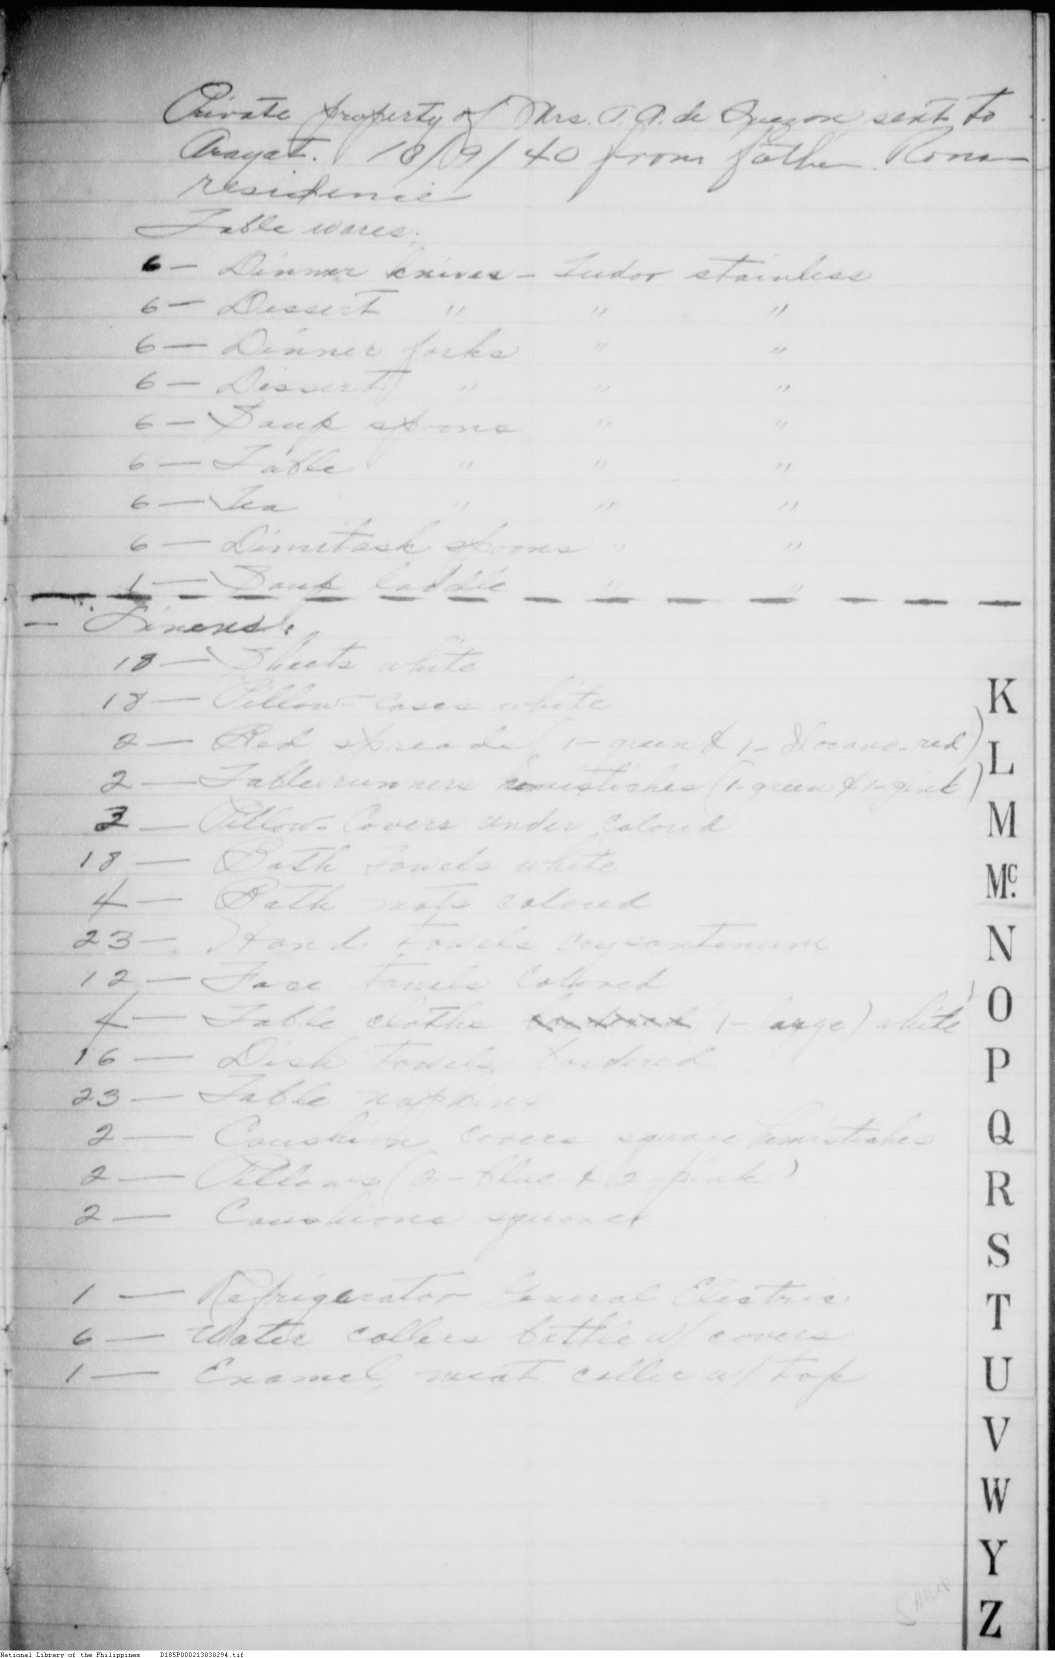 Private property of Mrs. A. A. de Quezon sent to
Arayat. 18/09/40 from father Rona
residencie
Table wares:
6 — Dinner knives — Tudor stainless
6 — Dessert " " "
6 — Dinner forks " "
6 — Dissert " " "
6 — Soup spoons " "
6 — Table " " "
6 — Tea " " "
6 — Dimitask spoons " "
1 — Soup laddle " "
— Linens:
18 — Sheets white
18 — Pillow cases white
2 — Bed spreads (1- green & 1- red)
2 — Table runners hemistiches (1-green & 1-pink)
3 — Pillow Covers under colored
18 — Bath towels white
4 — Bath mats colored
23 — Hand towels
12 — Face towels Colored
4 — Table cloths (1- large) white
16 — Dish towels bordered
23 — Table napkins
2 — Coushion covers square hemistiches
2 — Pillows (2- blue & 2 pink)
2 — Coushions square
1 — Refrigerator General Electric
6 — Water collers bottle w/ covers
1 — Enamel meat coller w/ top
K
L
M
Mc.
N
O
P
Q
R
S
T
U
V
W
Y
Z
National Library of the Philippines D185P000213030294.tif